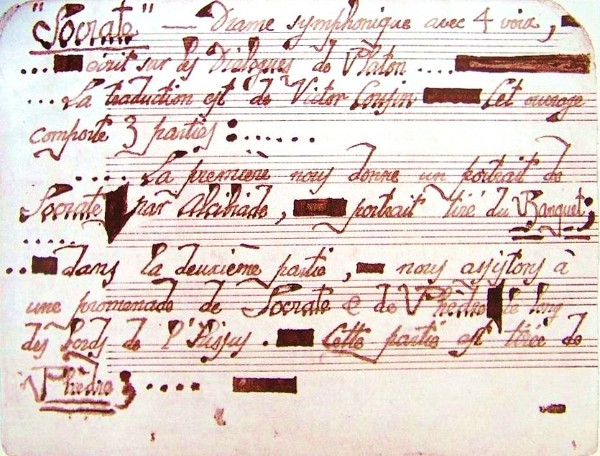 "Socrate" — Drame symphonique avec 4 voix,
.... écrit sur des Dialogues de Platon ....
... La traduction est de Victor Cousin Cet ouvrage
comporte 3 parties : ......
.... La première nous donne un portrait de
Socrate par Alcibiade, portrait tiré du Banquet;
.....
.. dans la deuxième partie, nous assistons à
une promenade de Socrate & de Phèdre le long
des bords de l'Ilissus. Cette partie est tirée de
Phèdre; ....